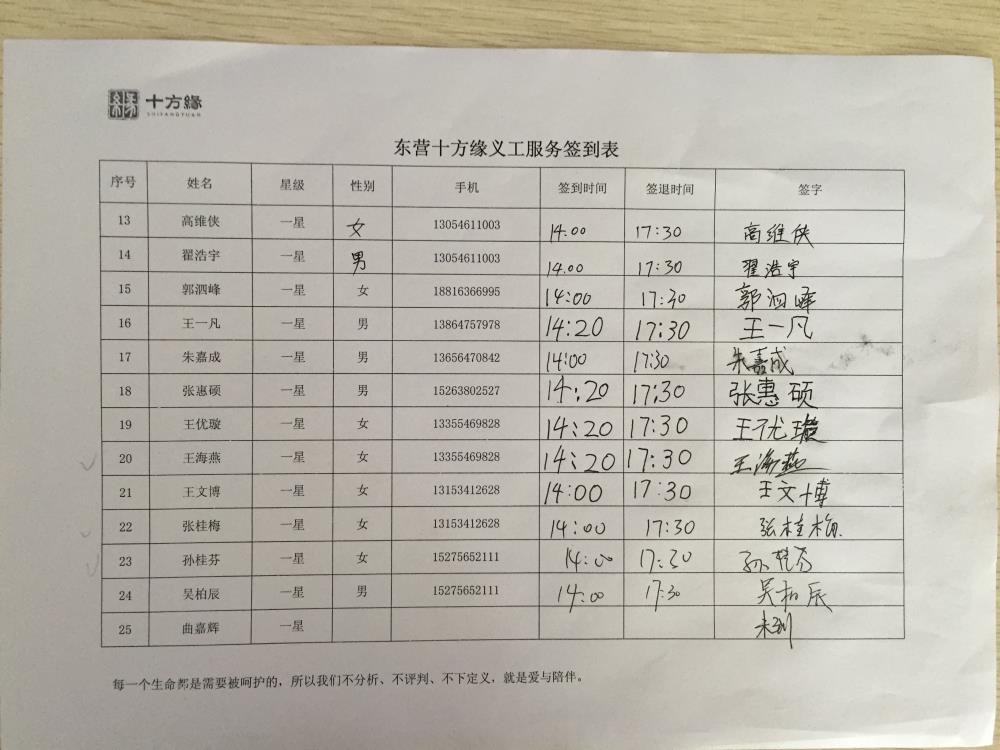 十方緣
SHIFANGYUAN
东营十方缘义工服务签到表
序号 姓名 星级 性别 手机 签到时间 签退时间 签字
13 高维侠 一星 女 13054611003 14.00 17:30 高维侠
14 翟浩宇 一星 男 13054611003 14.00 17:30 翟浩宇
15 郭泗峰 一星 女 18816366995 14:00 17:30 郭泗峰
16 王一凡 一星 男 13864757978 14:20 17:30 王一凡
17 朱嘉成 一星 男 13656470842 14:00 17:30 朱嘉成
18 张惠硕 一星 男 15263802527 14:20 17:30 张惠硕
19 王优璇 一星 女 13355469828 14:20 17:30 王优璇
20 王海燕 一星 女 13355469828 14:20 17:30 王海燕
21 王文博 一星 女 13153412628 14:00 17:30 王文博
22 张桂梅 一星 女 13153412628 14:00 17:30 张桂梅
23 孙桂芬 一星 女 15275652111 14:00 17:30 孙桂芬
24 吴柏辰 一星 男 15275652111 14:00 17:30 吴柏辰
25 曲嘉辉 一星 未到
每一个生命都是需要被呵护的，所以我们不分析、不评判、不下定义，就是爱与陪伴。